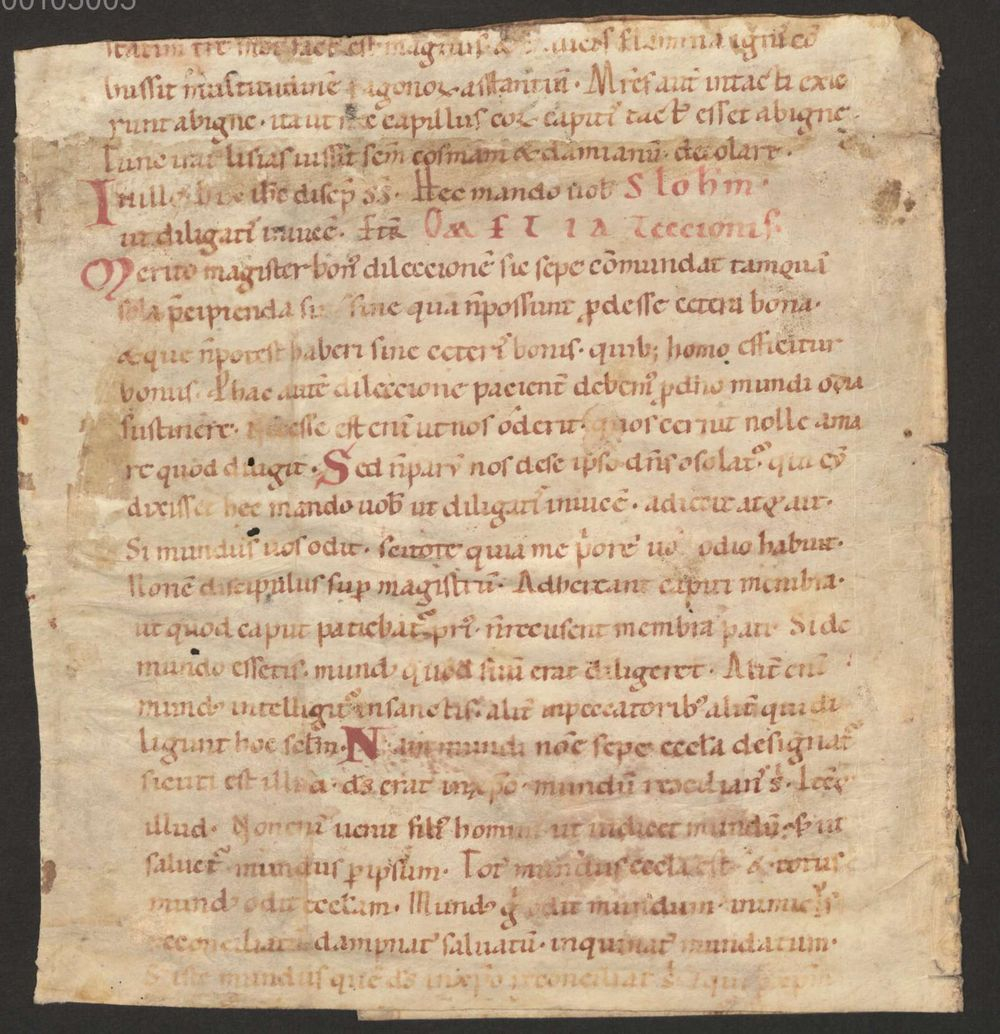 00105005
magnus &
multitudinē paganoꝝ astantiū · Mr̄es aut̄ intacti exie
runt ab igne · ita ut nec capillus eoꝝ capiti tact' esset ab igne ·
Tunc lisias iussit sc̄m cosmam & damianū decolare ·
In illo ih̄c discip̄ ss · Hec mando uob̄ S Ioh̄m ·
ut diligatis inuicē · Et R̄ O Æ S T I A Leccionis
Merito magister bon' dileccionē sic sepe cōmundat tamquā
sola p̄cipienda sit sine qua n̄ possunt ꝓdesse cetera bona ·
& que n̄ potest haberi sine ceteris bonis · quib; homo efficitur
bonus · P hac autē dileccione pacient̄ debem' p̄ dn̄o mundi odia
sustinere · Necesse est enī ut nos oderit · quos cernit nolle ama
re quod diligit · Sed n̄ parū nos de se ipso dn̄s ɔsolat' · qui cū
dixisset hec mando uob̄ ut diligatis inuicē · adiecit atqꝫ ait ·
Si mundus uos odit · scitote quia me p̄ore uo odio habuit ·
Non ē discipulus sup magistrū · Aduertant capiti membra ·
ut quod caput patiebat' pri' · n̄ recusent membra pati · Si de
mundo essetis · mund' quod suū erat diligeret · Alit̄ enī
mund' intelligit' in sanctis · alit̄ in peccatorib' alit̄ qui di
ligunt hoc sc̄lm · Nam mundi nōe sepe ecct̄a designat'
sicuti est illud · ds̄ erat in xp̄o mundū recōcilians s · Itē
illud · Non enī uenit fili' hominis ut iudicet mundū · s; ut
saluet' mundus p ipsum · Tot' mundus eccl̄a est · & totus
mund' odit eccl̄am · Mund' g̊ odit mundum · inimic's
reconciliatū · dampnat' saluatū · inquinat' mundatum ·
S iste mundus quē ds̄ in xp̄o reconciliat s